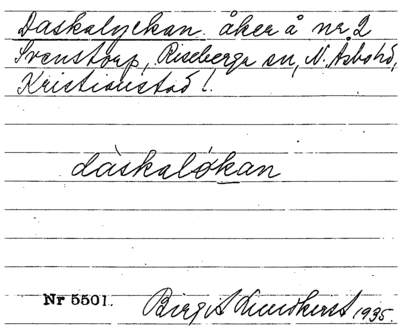 Daskalyckan åker å nr 2
Svenstorp, Riseberga sn, N. Åsbohd,
Kristianstad l.
dàskalókan
Nr 5501.
Birgit Lundkvist 1935.